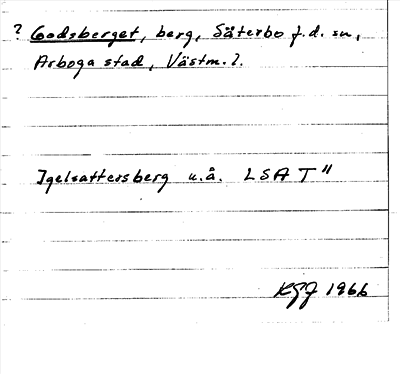 ? Godsberget, berg, Säterbo f.d. sn,
Arboga stad, Västm. l.
Igelsattersberg u.å. LSA T"
KGJ 1966